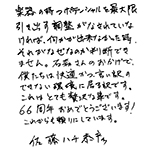 楽器の持つポテンシャルを最大限
引き出す調整がなされていな
ければ、何かが出来なかった時、
それがなぜなのか判断できま
せん。石森さんのおかげで、
僕たちは快適かつ言い訳の
できない環境に居る訳です。
これはとても贅沢な事です。
66周年おめでとうございます!
これからも頼りにしています。
佐藤ハチ恭彦